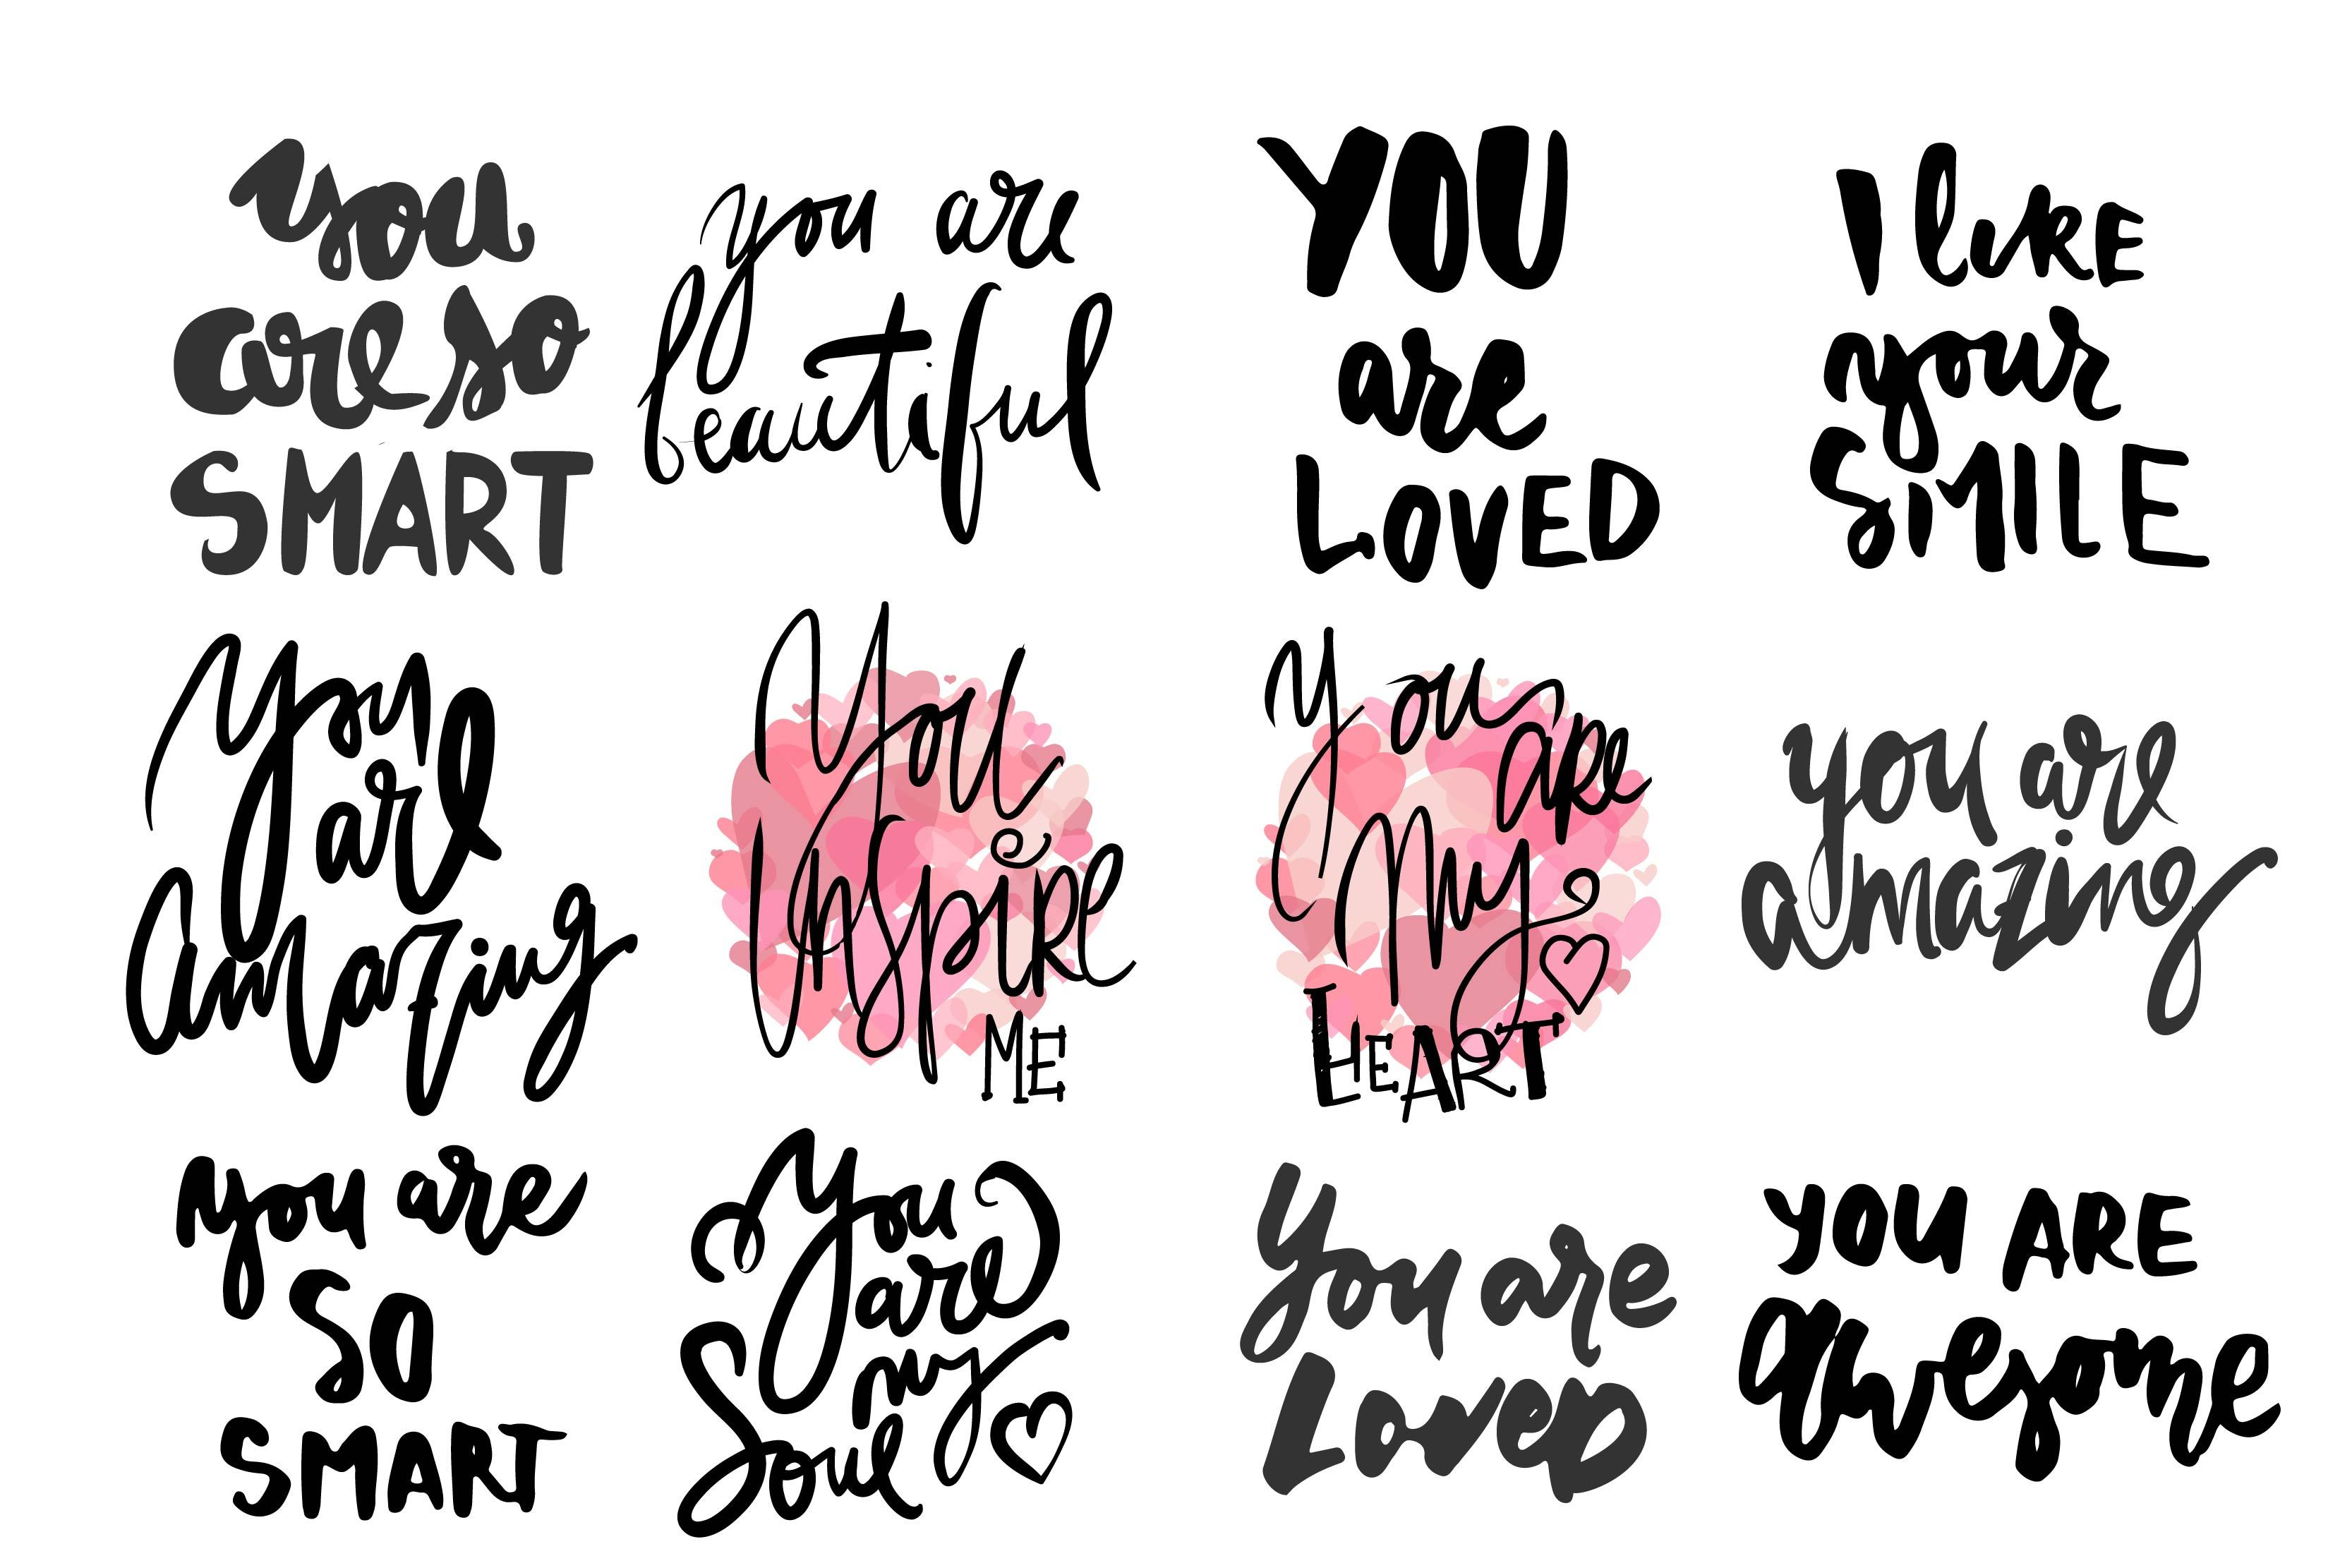 you
are so
SMART
you are
beautiful
YOU
are
LOVED
I like
your
SMILE
You
are
amazing
You
Inspire
ME
You
are
My
HEART
you are
amazing
you are
SO
SMART
You
are
my
Soul
You are
Loved
YOU ARE
Awesome